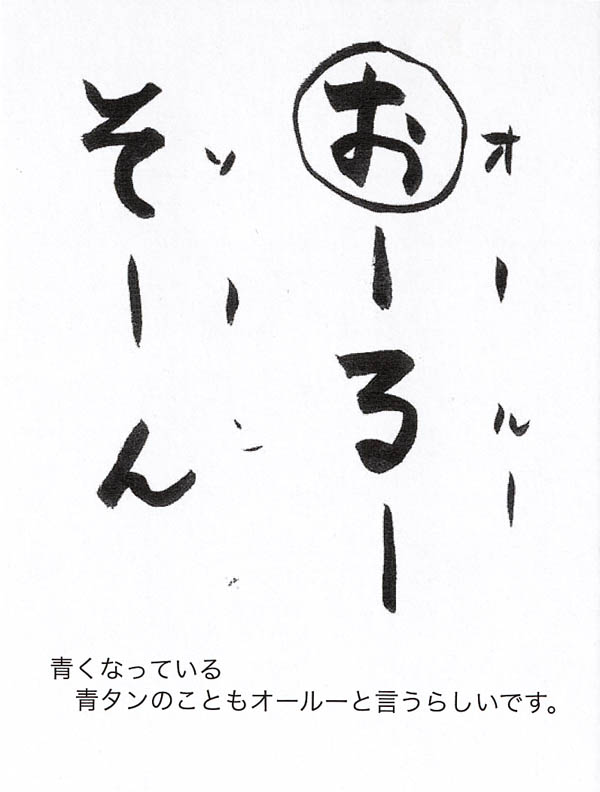 おーるー
オールー
そーん
ソーン
青くなっている
青タンのこともオールーと言うらしいです。